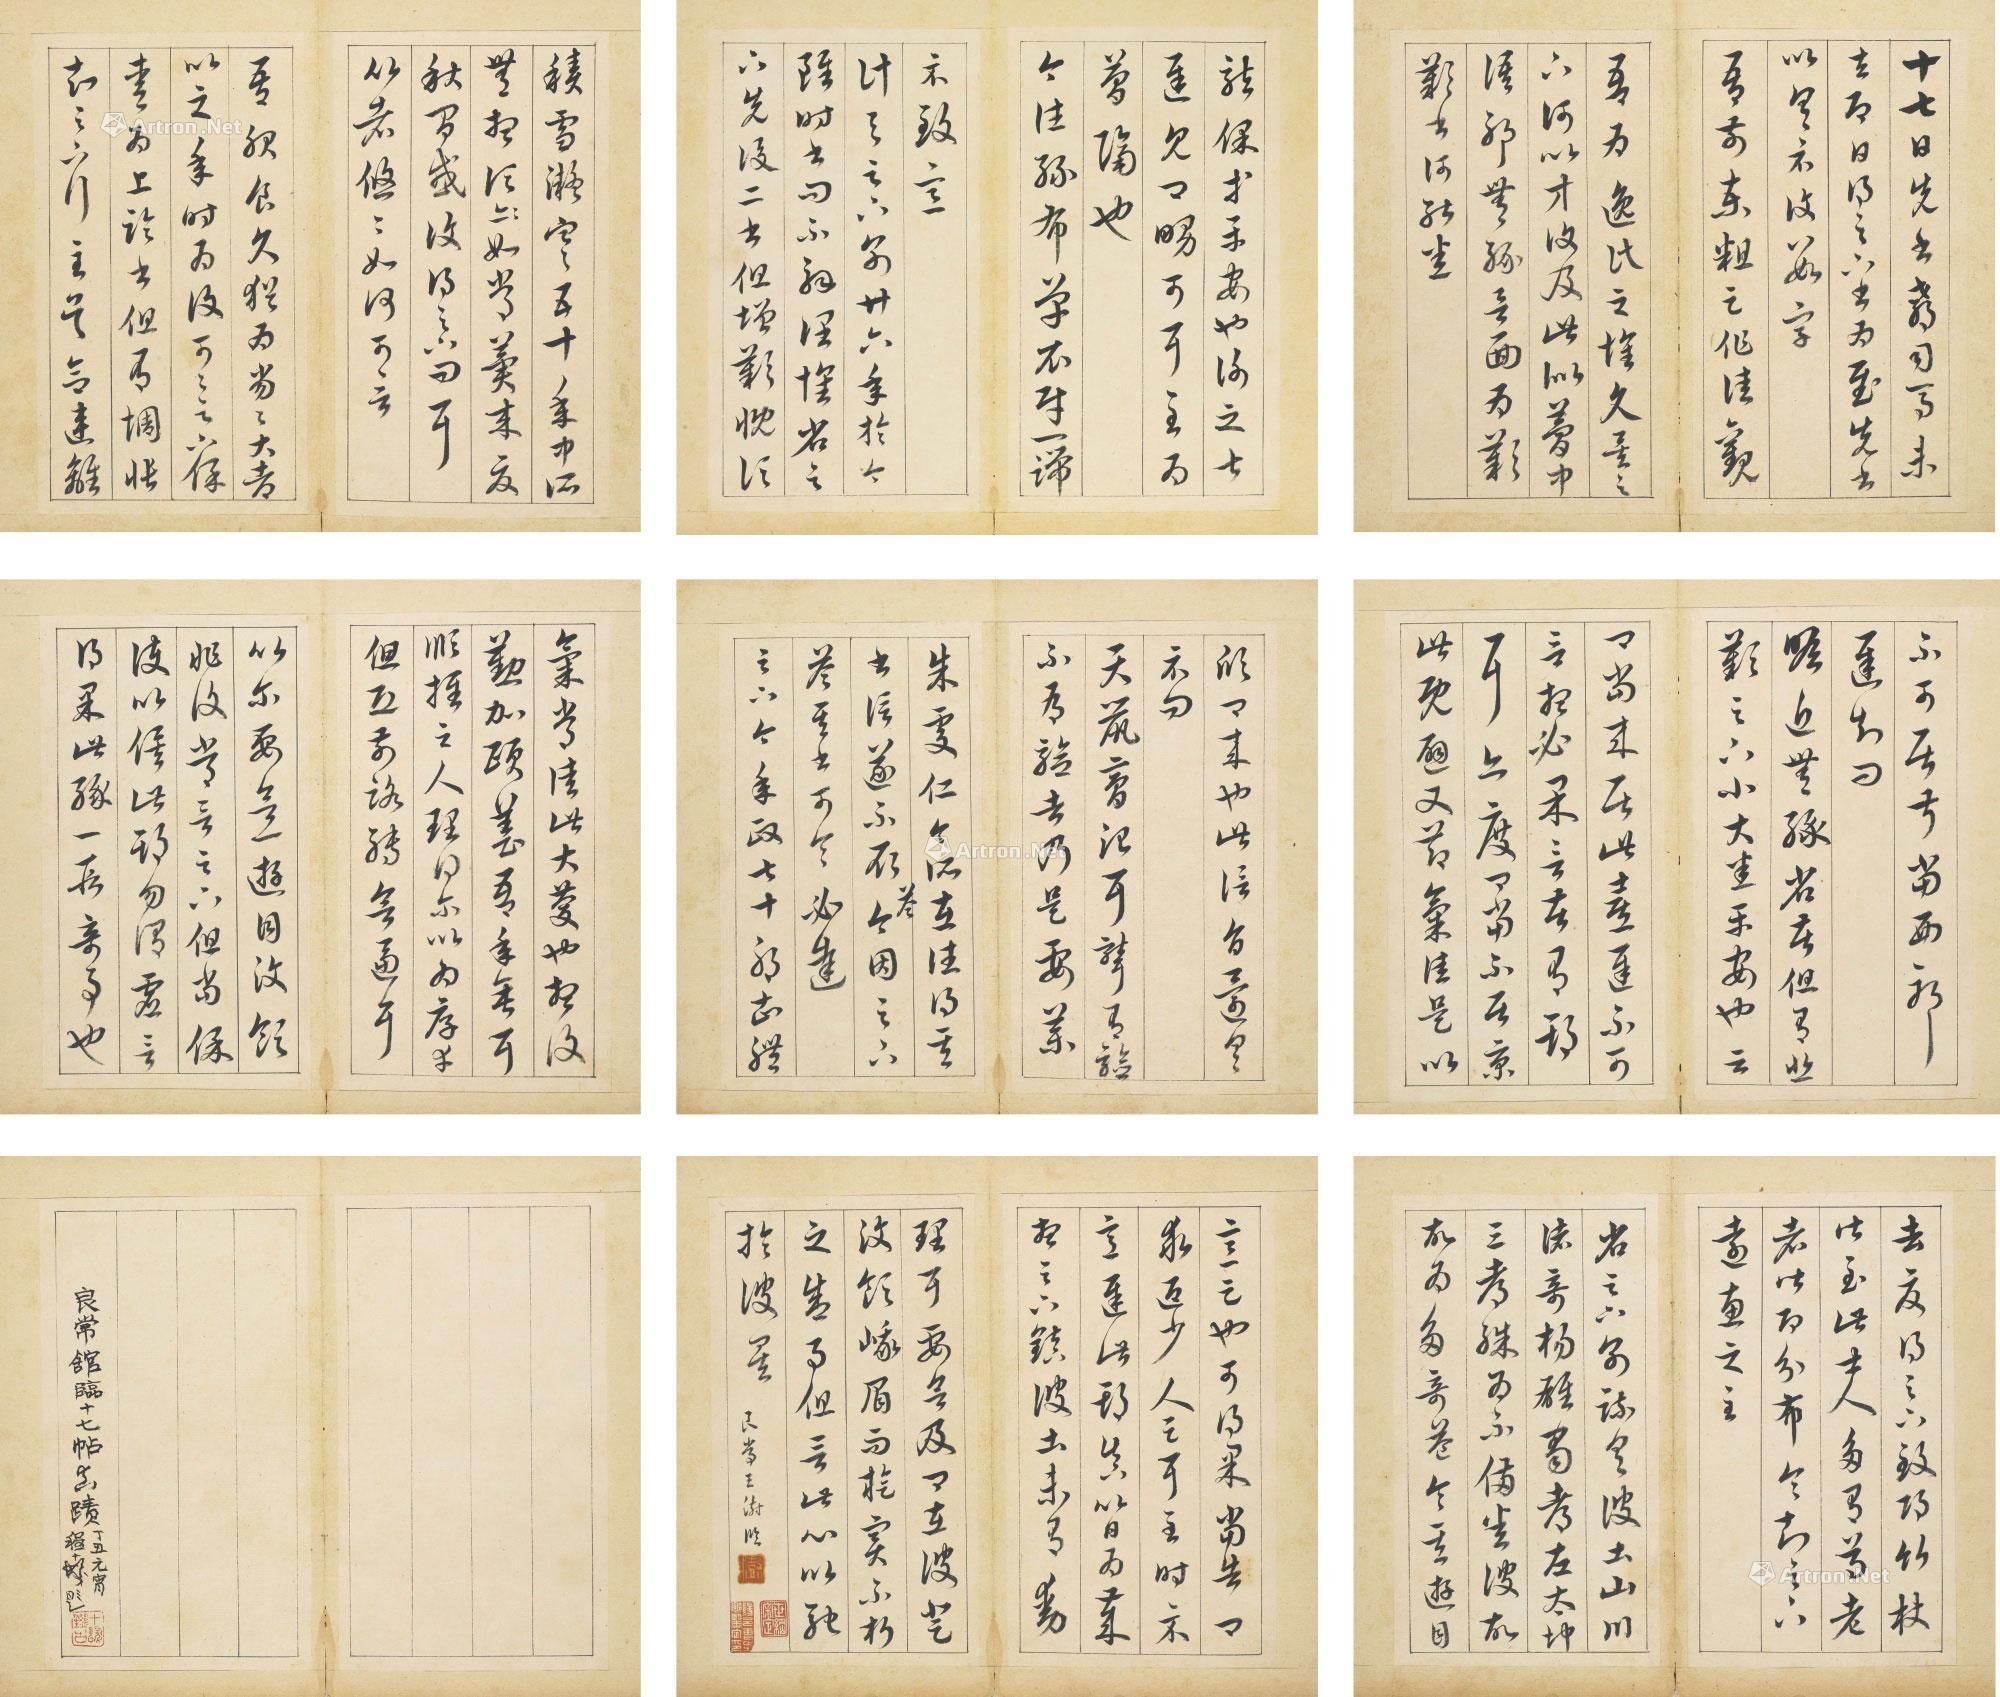 十七日先書郗司馬未
去即日得足下書為慰先書
以具示復數字
吾前東粗足作佳觀
吾為逸民之懷久矣足
下何以方復及此似夢中
語耶無緣言面為歎
歎書何能悉
龍保等平安也謝之甚
遲見卿舅可耳至為
簡隔也
今往絲布單衣財一端
示致意
計與足下別廿六年於今
雖時書問不解闊懷省足
下先後二書但增歎慨頃
積雪凝寒五十年中所
無想頃如常冀來夏
秋間或復得足下問耳
比者悠悠如何可言
吾服食久猶為劣劣大都
比之年時為復可可足下保
愛為上臨書但有惆悵
知足下行至吳念違離
不可居叔當西耶
遲知問
瞻近無緣省苦但有悲
歎足下小大悉平安也云
卿當來居此喜遲不可
言想必果言苦有期
耳亦度卿當不居京
此既避又節氣佳是以
欣卿來也此信旨還具
示問
天鼠膏治耳聾有驗
不有驗者乃是要藥
朱處仁今所在往得其
書信遂不取答今因足下
答其書可令必達
足下今年政七十耶知體
氣常佳此大慶也想復
勤加頤養吾年垂耳
順推之人理得爾以為厚幸
但恐前路轉欲逼耳
以爾要欲一遊目汶領
非復常言足下但當保
護以俟此期勿謂虛言
得果此緣一段奇事也
去夏得足下致邛竹杖
皆至此士人多有尊老
者皆即分布令知足下
遠惠之至
省足下別疏具彼土山川
諸奇揚雄蜀都左太沖
三都殊為不備悉彼故
故為多奇益令其遊目
意足也可得果當告卿
求迎少人足耳至時示
意遲此期真以日為歲
想足下鎮彼土未有動
理耳要欲及卿在彼登
汶領峨眉而旋實不朽
之盛事但言此心以馳
於彼矣
良常王澍臨
良常館臨十七帖真蹟
丁丑元宵
程十髮題
Artron.Net
Artron.Net
Artron.Net